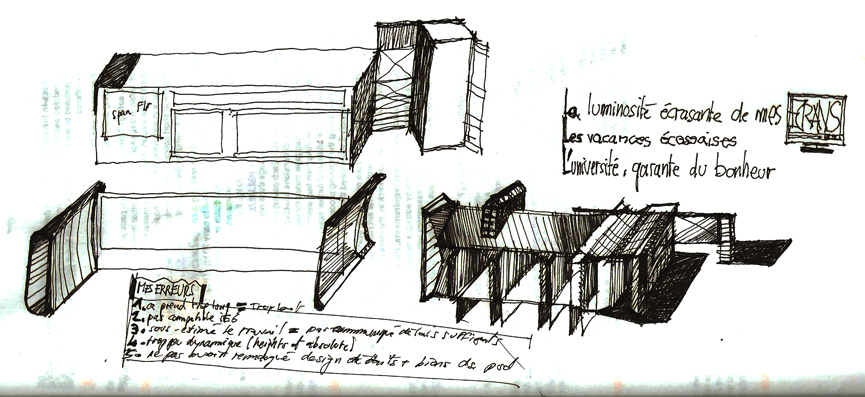 span Flr
La luminosité écrasante de mes ÉCRANS
Les vacances écossaises
L'université, garante du bonheur
MES ERREURS
1. ça prend trop long =
2. pas compatible IE6
3. sous-estimé le travail = pas communiqué délais suffisants
4. trop peu dynamique (heights et absolute)
5. ne pas avoir remarqué design de + biens de